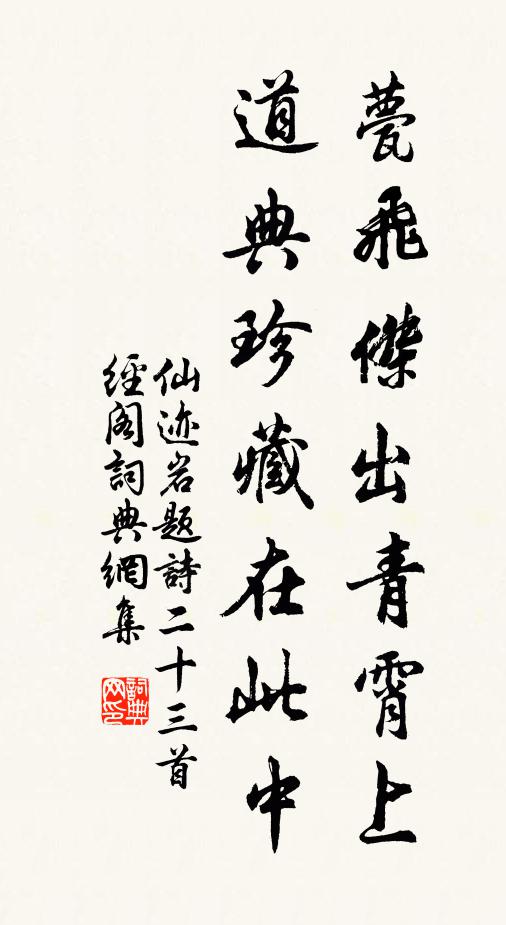 甍飛傑出青霄上
道典珍藏在此中
仙迹岩題詩二十三首
經閣詞典網集
詞典网印